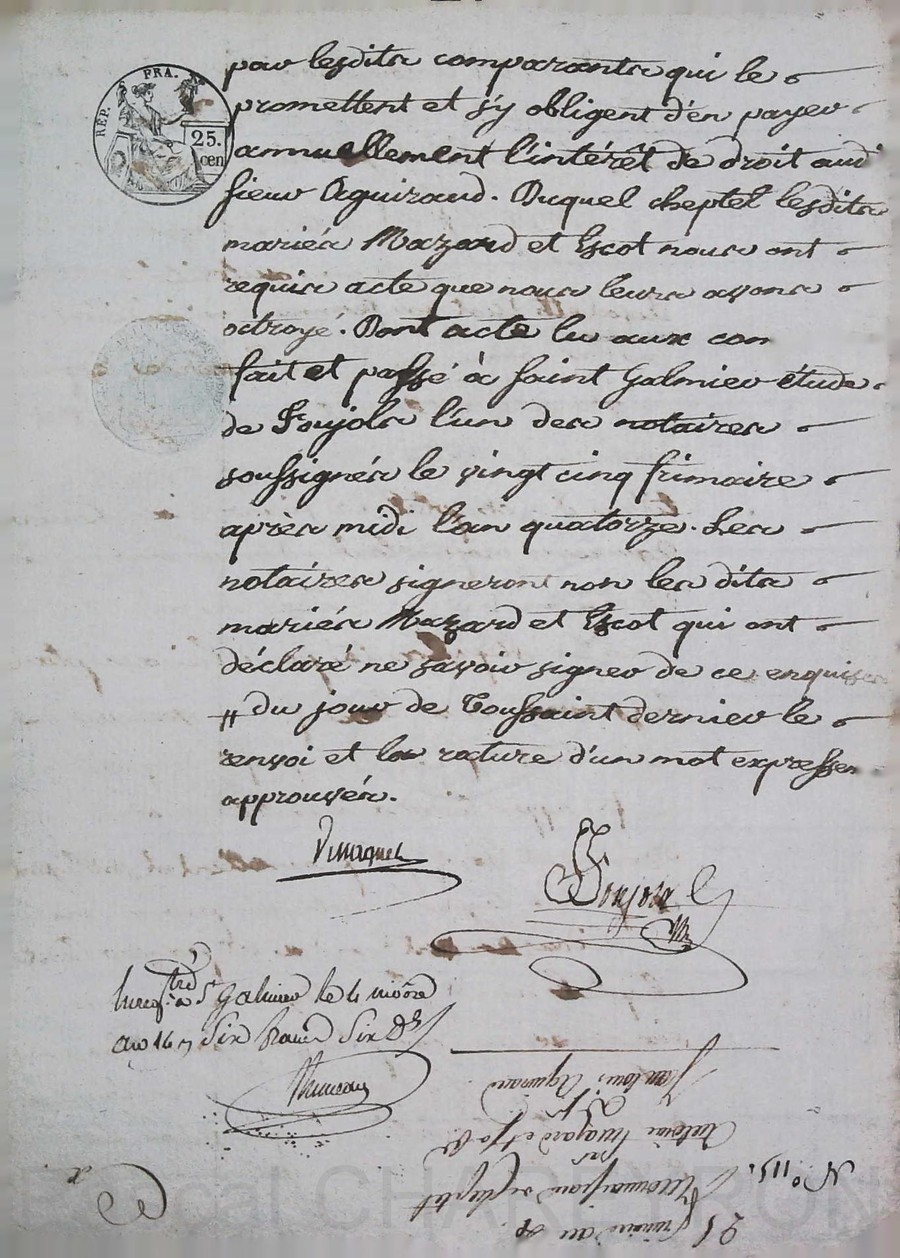 REP. FRA.
25.
cen
par lesdits comparants qui le
promettent et s'y obligent d'en payer
annuellement l'intérêt de droit audt
sieur Aguiraud. Duquel cheptel lesdits
mariés Mazard et Escot nous ont
requis acte que nous leurs avons
octroyé. Dont acte lu aux con
fait et passé à Saint Galmier étude
de Foujols l'un des notaires
soussignés le vingt cinq frimaire
après midi l'an quatorze. Les
notaires signeront non les dits
mariés Mazard et Escot qui ont
déclaré ne savoir signer de ce enquis
// du jour de Toussaint dernier le
renvoi et la rature d'un mot expressen
approuvés.
Foujols
Enregtré à St Galmier le 4 nivôse
an 14 Six francs Six
25 frimaire an
No. 115.
cheptel
Antoine Mazard et sa fe
Jean Louis Aguiraud
Pascal CHAREYRON